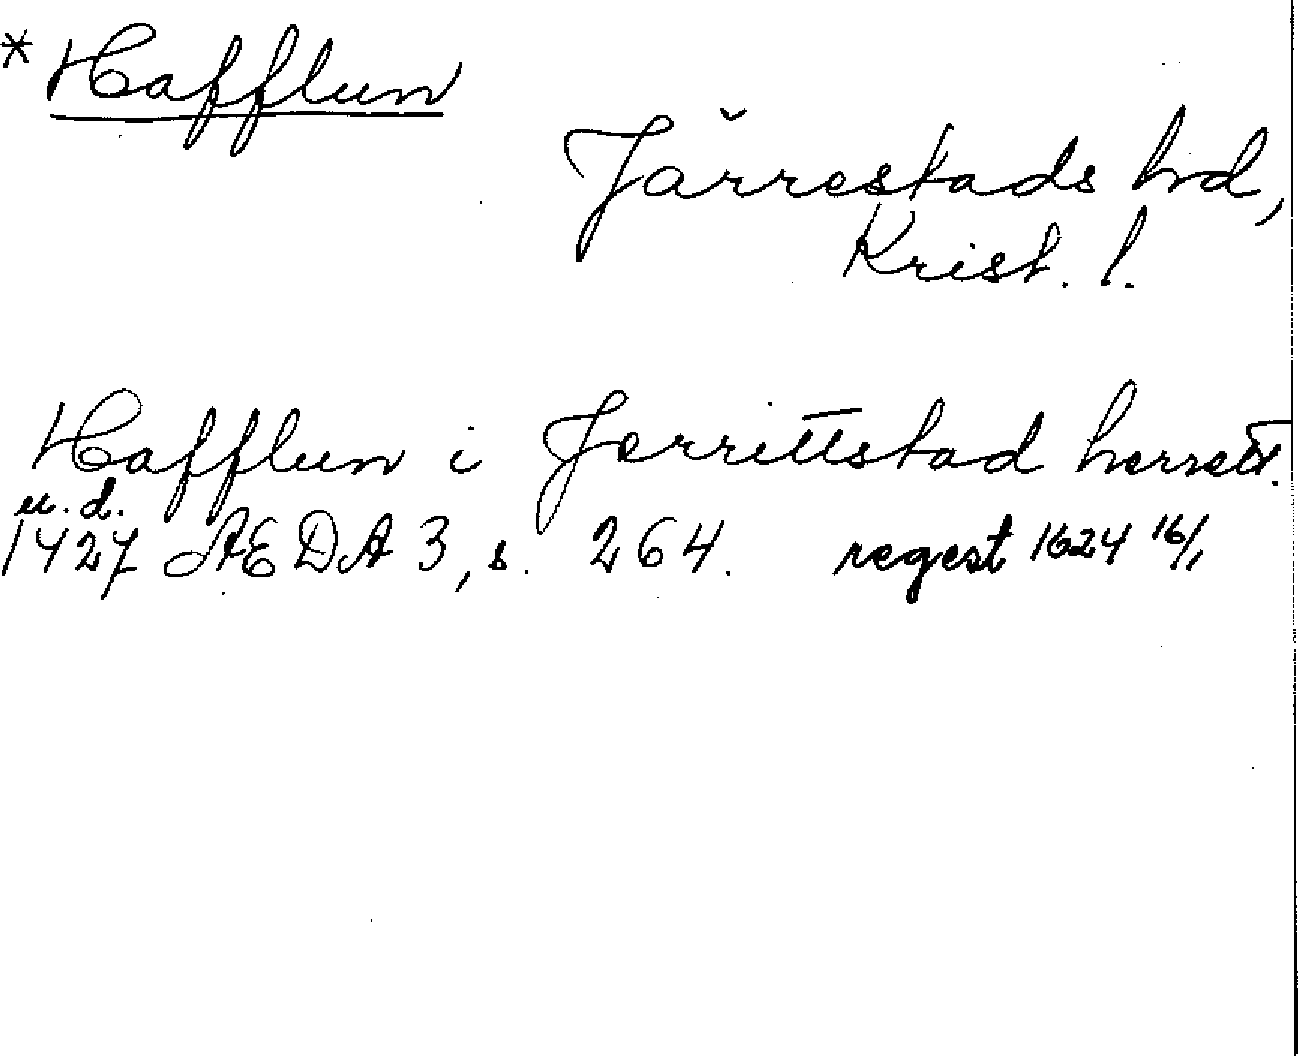 * Hafflun
Järrestads hrd,
Krist. l.
Hafflun i Jerrittstad herrett.
u. d.
1427 ÆDA 3, s. 264. regest 1624 16/1